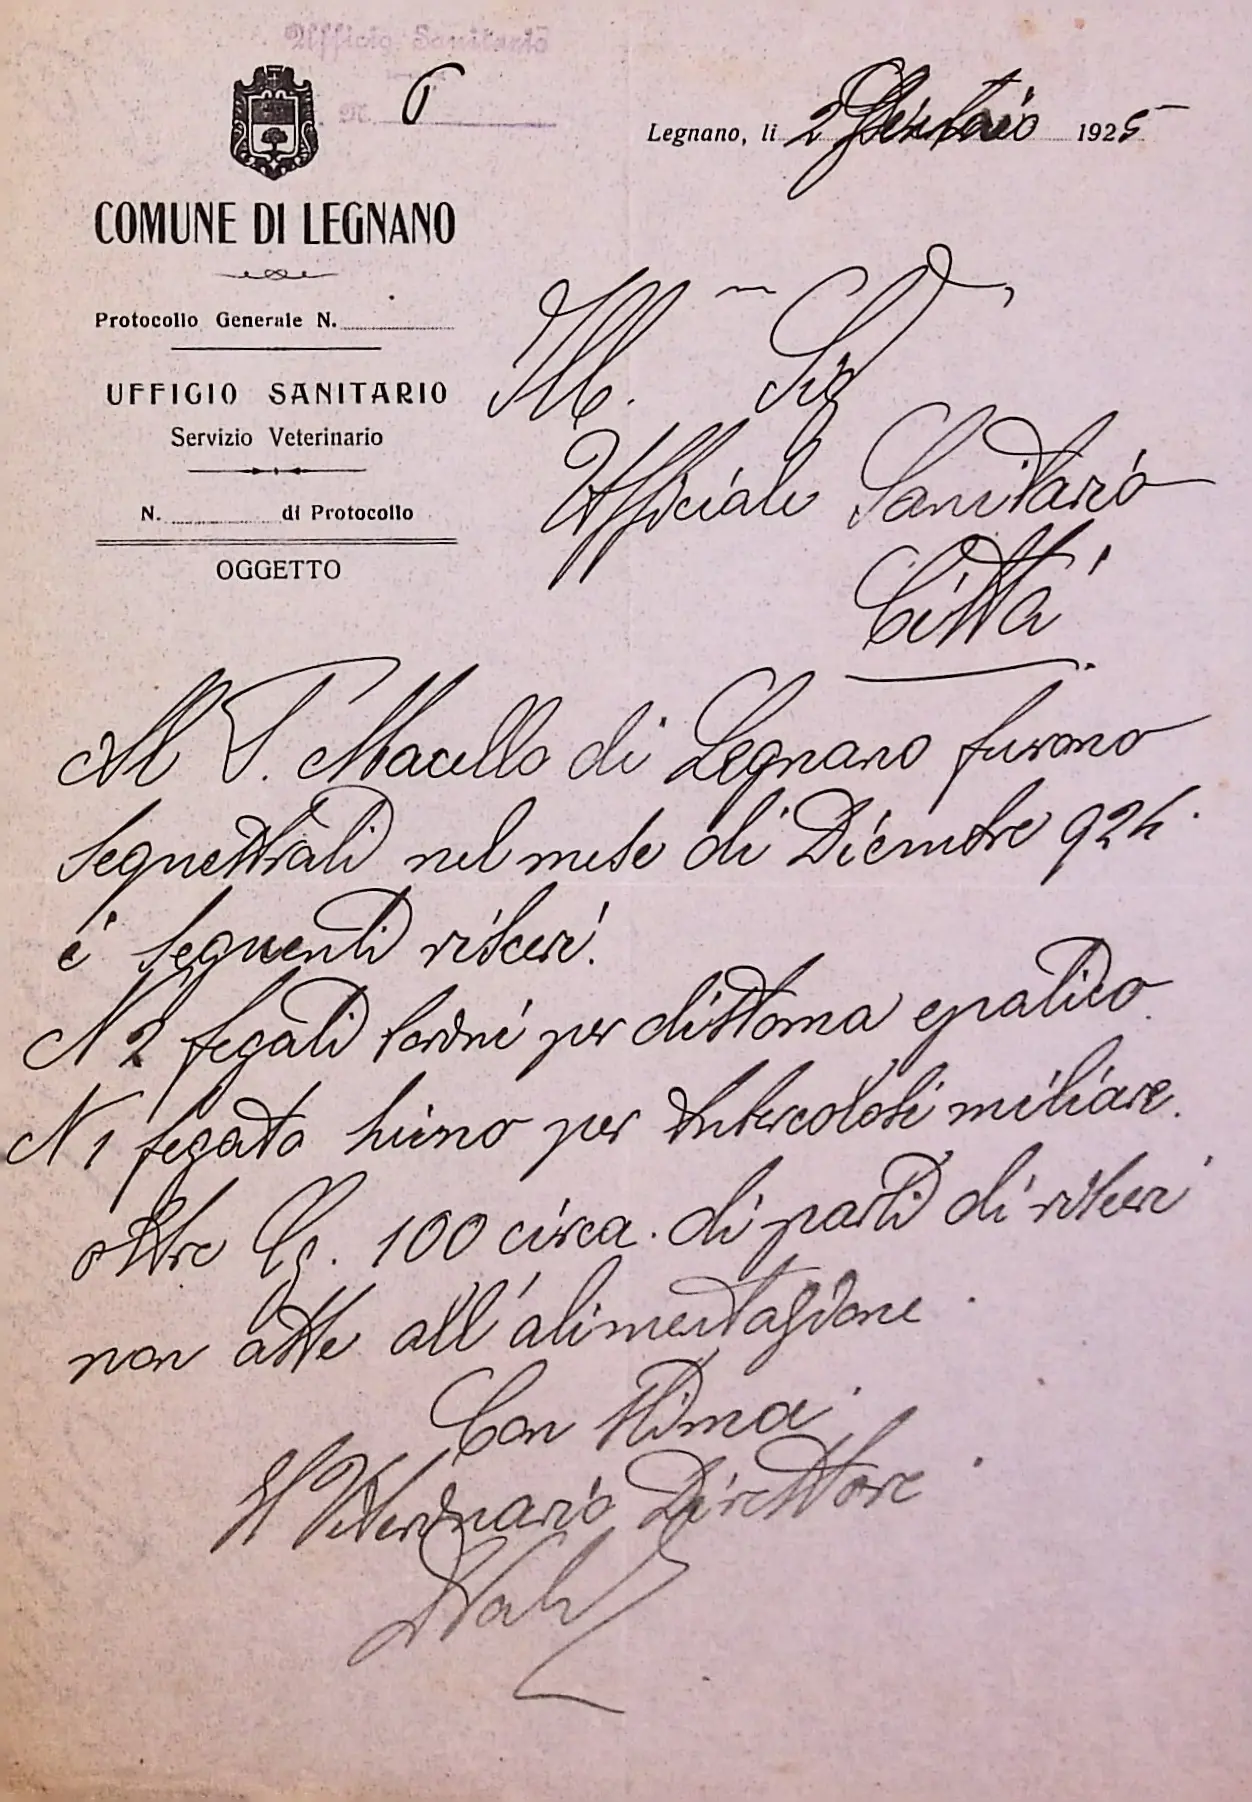 Ufficio Sanitario
N. 6
Legnano, li 2 Gennaio 1925
COMUNE DI LEGNANO
Protocollo Generale N.
UFFICIO SANITARIO
Servizio Veterinario
N. di Protocollo
OGGETTO
Ill.mo Sig
Ufficiale Sanitario
Città
Al P. Macello di Legnano furono
sequestrati nel mese di Dicembre 924.
i seguenti visceri.
N 2 fegati bovini per distoma epatico.
N 1 fegato suino per tubercolosi miliare.
oltre Kg. 100 circa. di parti di visceri
non atte all'alimentazione.
Con stima
Il Veterinario Direttore